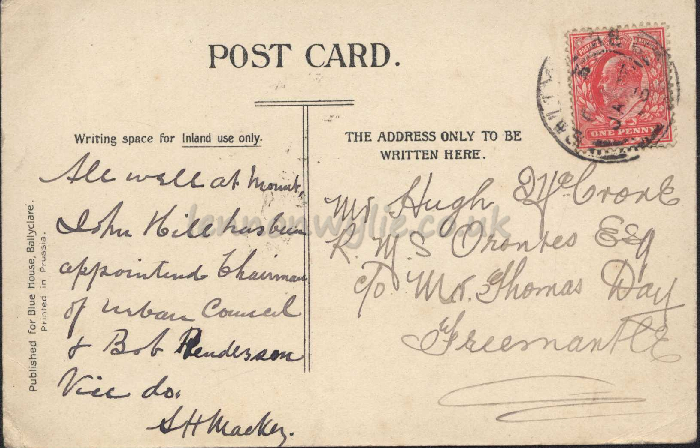 POST CARD.
Writing space for Inland use only.
All well at Mount,
John Hill has been
appointend Chairman
of Urban Council
& Bob Henderson
Vice do.
S H Mackey.
THE ADDRESS ONLY TO BE
WRITTEN HERE.
Mr Hugh McCrone
R. M. S Orontes Esq
c/o Mr. Thomas Day
Freemantle
ONE PENNY
Published for Blue House, Ballyclare.
Printed in Prussia.
lennonwylie.co.uk